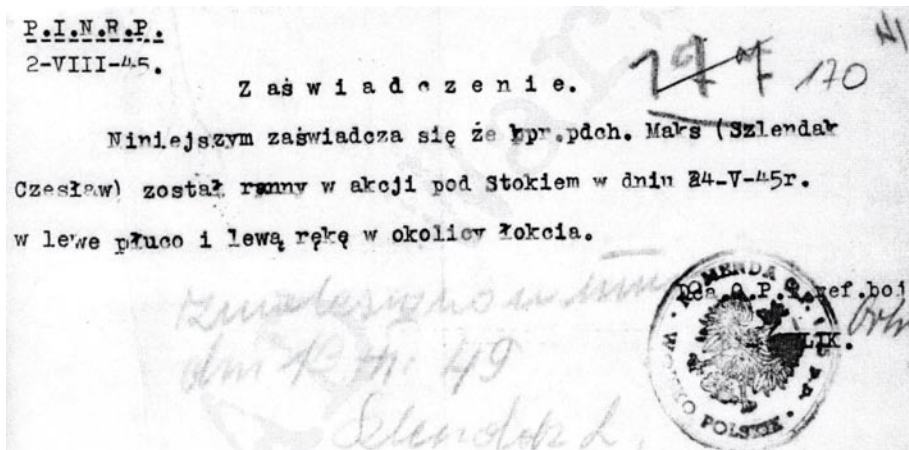 P.I.N.R.P.
2-VIII-45.
170
Zaświadczenie.
Niniejszym zaświadcza się że kpr.pdch. Maks (Szlendak
Czesław) został ranny w akcji pod Stokiem w dniu 24-V-45r.
w lewe płuco i lewą rękę w okolicy łokcia.
O.P. i ref.boj
LIK.
KOMENDA
WOJSKO POLSKIE
49